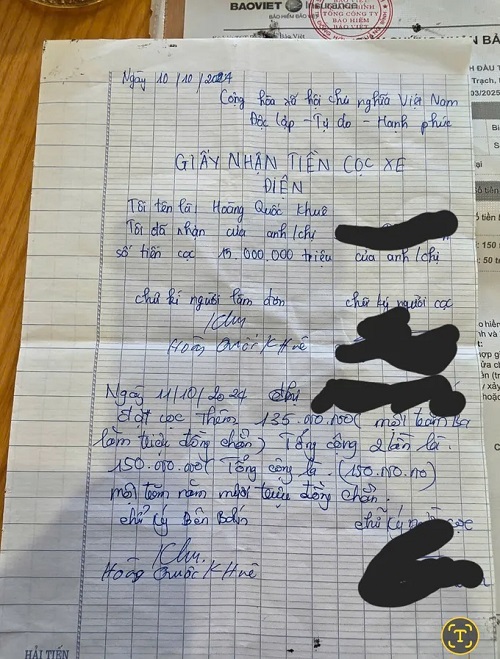 BAOVIET Insurance
BẢO HIỂM BẢO VIỆT
TỔNG CÔNG TY
BẢO HIỂM
BẢO VIỆT
Ngày 10/10/2024
Cộng hòa xã hội chủ nghĩa Việt Nam
Độc lập - Tự do - Hạnh phúc
GIẤY NHẬN TIỀN CỌC XE
ĐIỆN
Tôi tên là Hoàng Quốc Khuê
Tôi đã nhận của anh/chị
số tiền cọc 15.000.000 triệu của anh/chị
chữ kí người làm đơn chữ ký người cọc
Hoàng Quốc KHuê
Ngày 11/10/2024 chị
đặt cọc thêm 135.000.000 (một trăm ba
lăm triệu đồng chẵn) Tổng cộng 2 lần là.
150.000.000 (Tổng cộng là. (150.000.000)
một trăm năm mươi triệu đồng chẵn.
chữ ký Bên Bán chữ ký cọc
Hoàng Quốc KHuê
HẢI TIẾN